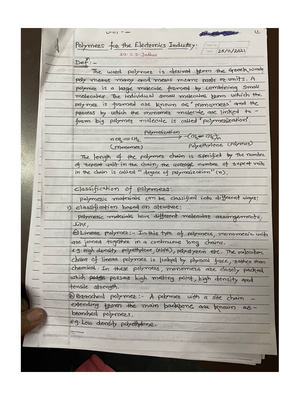 Polymers for the Electronics Industry.
Def:-
The word polymer is derived from the Greek words
poly means many and mers means parts or units. A
polymer is a large molecule formed by combining small
molecules. The individual small molecules from which the
polymer is formed are known as "monomers" and the
process by which the monomer molecules are linked to
form big polymer molecule is called "polymerization"
Polymerization
nCH2=CH2 → -(CH2-CH2)n
(Monomer) Polyethylene (Polymer)
The length of the polymer chain is specified by the number
of repeat unit in the chain, the average number of repeat unit
in the chain is called "degree of polymerization" (n).
classification of Polymers:
polymeric materials can be classified into different ways:
classification based on structure:
polymeric materials have different molecular arrangements,
like,
Linear polymer:- In this type of polymers, monomeric units
are joined together in a continuous long chain.
e.g. High density polyethylene (HDPE), polystyrene etc. The
chains of linear polymer is linked by physical force, rather than
chemical. In these polymers, monomers are closely packed
which posses high melting point, high density and
tensile strength.
Branched polymer:- A polymer with a side chain
extending from the main backbone are known as
branched polymers.
e.g. Low density polyethylene.